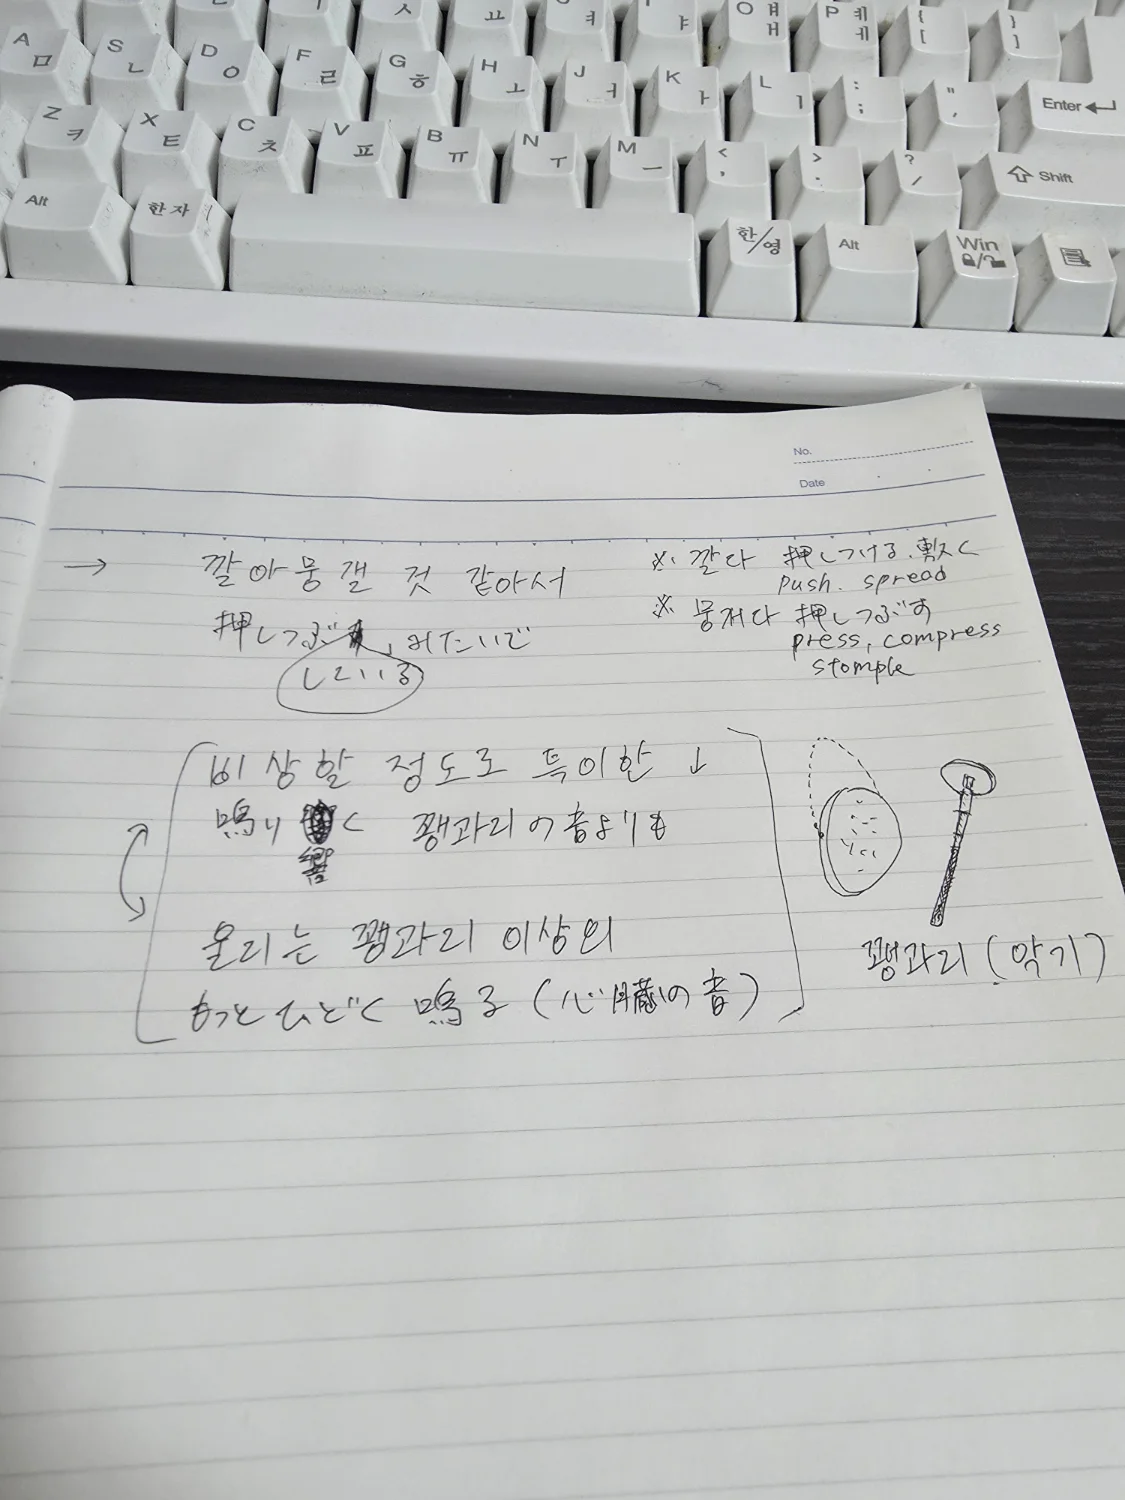 ㅅ ㅛ ㅕ ㅑ O ㅐ ㅒ P ㅔ ㅖ { [ } ]
A ㅁ S ㄴ D ㅇ F ㄹ G ㅎ H ㅗ J ㅓ K ㅏ L ㅣ : ; " ' Enter
Z ㅋ X ㅌ C ㅊ V ㅍ B ㅠ N ㅜ M ㅡ < , > . ? / Shift
Alt 한자 한/영 Alt Win
No.
Date
→ 깔아뭉갤 것 같아서
押しつぶ, みたいで
している
※ 깔다 押しつける. 敷く
push. spread
※ 뭉개다 押しつぶす
press, compress
stomple
비상할 정도로 특이한 ↓
鳴り く 꽹과리の音よりも
響
울리는 꽹과리 이상의
もっとひどく 鳴る (心臓の音)
꽹과리 (악기)